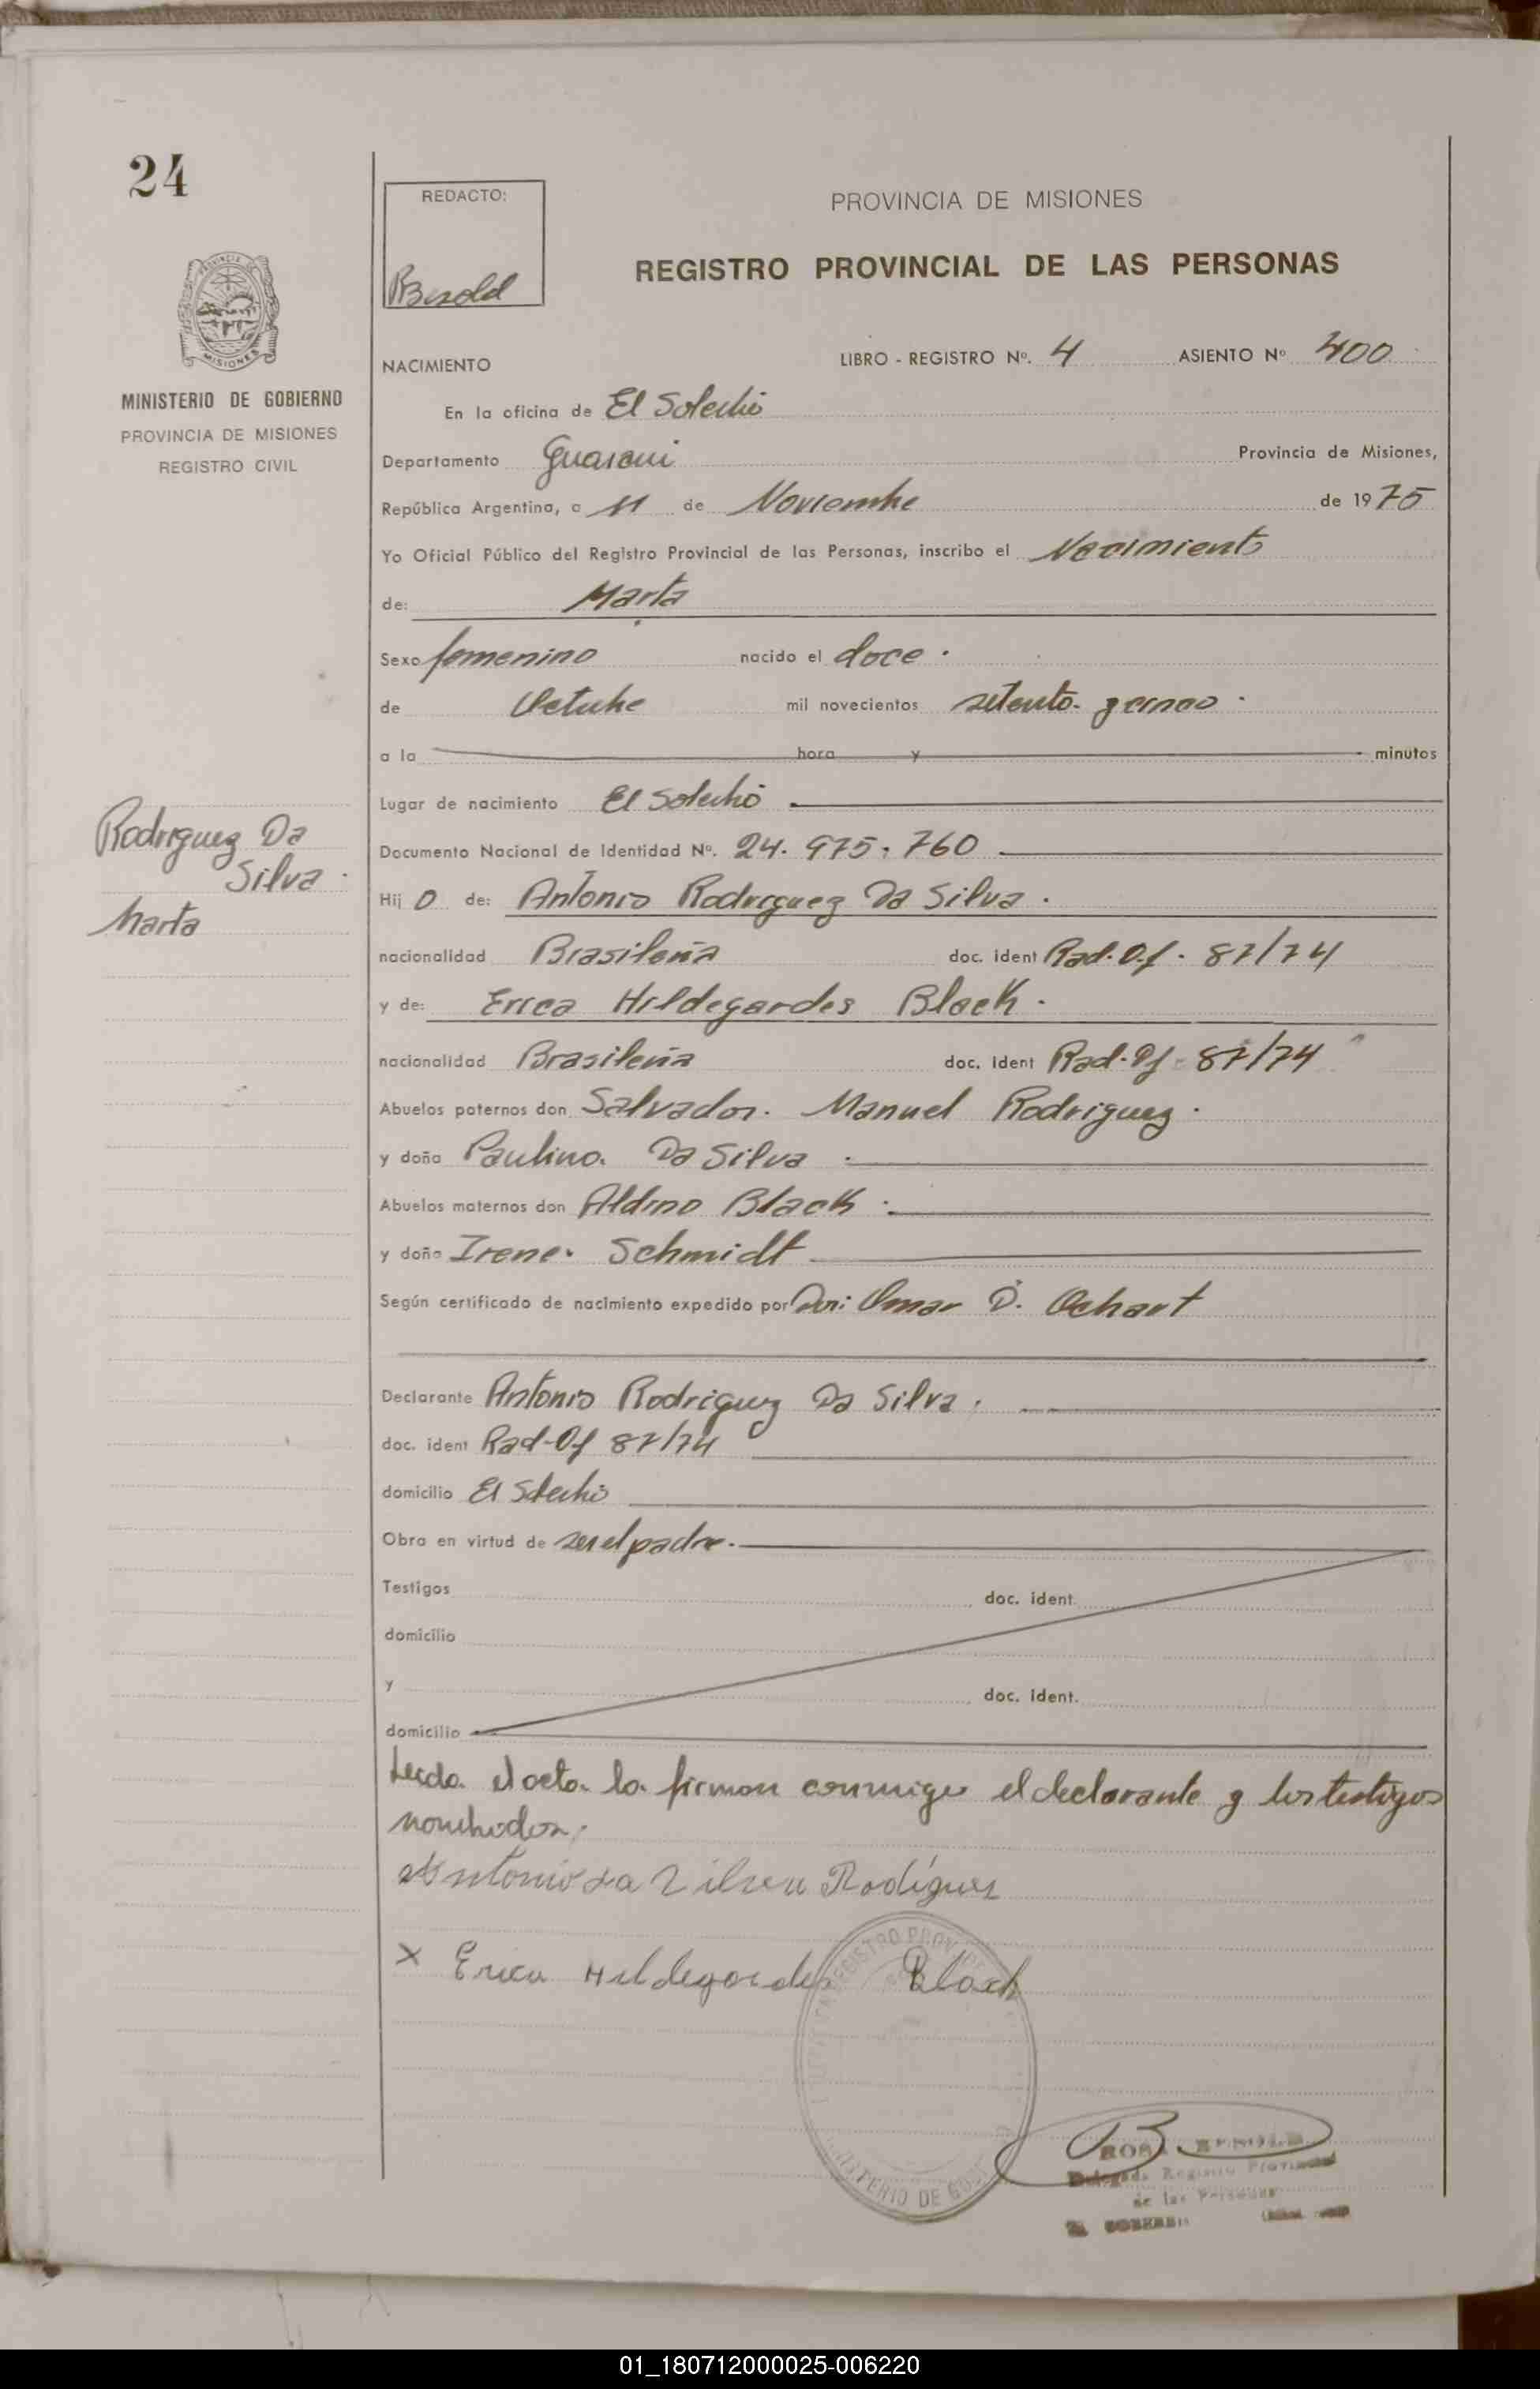 24
REDACTO:
Bezold
PROVINCIA DE MISIONES
REGISTRO PROVINCIAL DE LAS PERSONAS
PROVINCIA
MISIONES
MINISTERIO DE GOBIERNO
PROVINCIA DE MISIONES
REGISTRO CIVIL
NACIMIENTO LIBRO - REGISTRO Nº. 4 ASIENTO Nº 400
En la oficina de El Soberbio
Departamento Guarani Provincia de Misiones,
República Argentina, a 11 de Noviembre de 1975
Yo Oficial Público del Registro Provincial de las Personas, inscribo el Nacimiento
de: Marta
Sexo femenino nacido el doce.
de Octubre mil novecientos setenta y cinco.
a la hora y minutos
Lugar de nacimiento El Soberbio
Rodriguez Da
Silva.
Marta
Documento Nacional de Identidad Nº. 24.975.760
Hij o de: Antonio Rodriguez Da Silva.
nacionalidad Brasileña doc. ident Rad. Of. 87/74
y de: Erica Hildegardes Black.
nacionalidad Brasileña doc. ident Rad. Of. 87/74
Abuelos paternos don Salvador. Manuel Rodriguez.
y doña Paulina. Da Silva.
Abuelos maternos don Aldino Black.
y doña Irene. Schmidt
Según certificado de nacimiento expedido por Omar D. Ochart
Declarante Antonio Rodriguez Da Silva.
doc. ident Rad-Of 87/74
domicilio El Soberbio
Obra en virtud de ser el padre.
Testigos doc. ident.
domicilio
y doc. ident.
domicilio
Leida el acta la firman conmigo el declarante y los testigos
nombrados.
Antonio da Silva Rodígues
x Erica Hildegardes Black
REGISTRO PROV
MINISTERIO DE GOB
ROSA BEZOLD
Delegada Registro Provincial
de las Personas
EL SOBERBIO
01_180712000025-006220